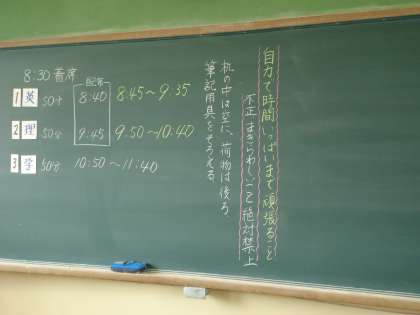 8:30 着席
配布
1 英 50分 8:40 8:45〜9:35
2 理 50分 9:45 9:50〜10:40
3 学 50分 10:50〜11:40
自力で時間いっぱいまで頑張ること
不正 まぎらわしいこと 絶対禁止
机の中は空に、荷物は後ろ
筆記用具をそろえる